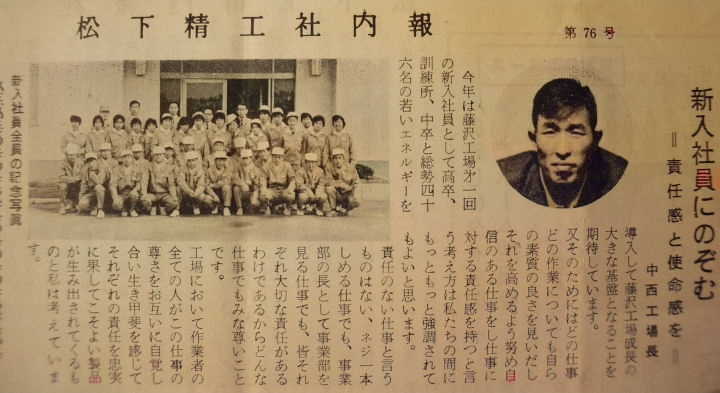 松下精工社内報
第76号
新入社員にのぞむ
＝責任感と使命感を＝
中西工場長
今年は藤沢工場才一回
の新入社員として高卒、
訓練所、中卒と総勢四十
六名の若いエネルギーを
導入して藤沢工場成長の
大きな基盤となることを
期待しています。
又そのためにはどの仕事
どの作業についても自ら
の素質の良さを見いだし
それを高めるよう努め自
信のある仕事をし仕事に
対する責任感を持つと言
う考え方は私たちの間に
もっともっと強調されて
もよいと思います。
責任のない仕事と言う
ものはない、ネジ一本
しめる仕事でも、事業
部の長として事業部を
見る仕事でも、皆それ
ぞれ大切な責任がある
わけであるからどんな
仕事でもみな尊いこと
です。
工場において作業者の
全ての人がこの仕事の
尊さをお互いに自覚し
合い生き甲斐を感じて
それぞれの責任を忠実
に果してこそよい製品
が生み出されてくるも
のと私は考えていま
す。
新入社員全員の記念写真